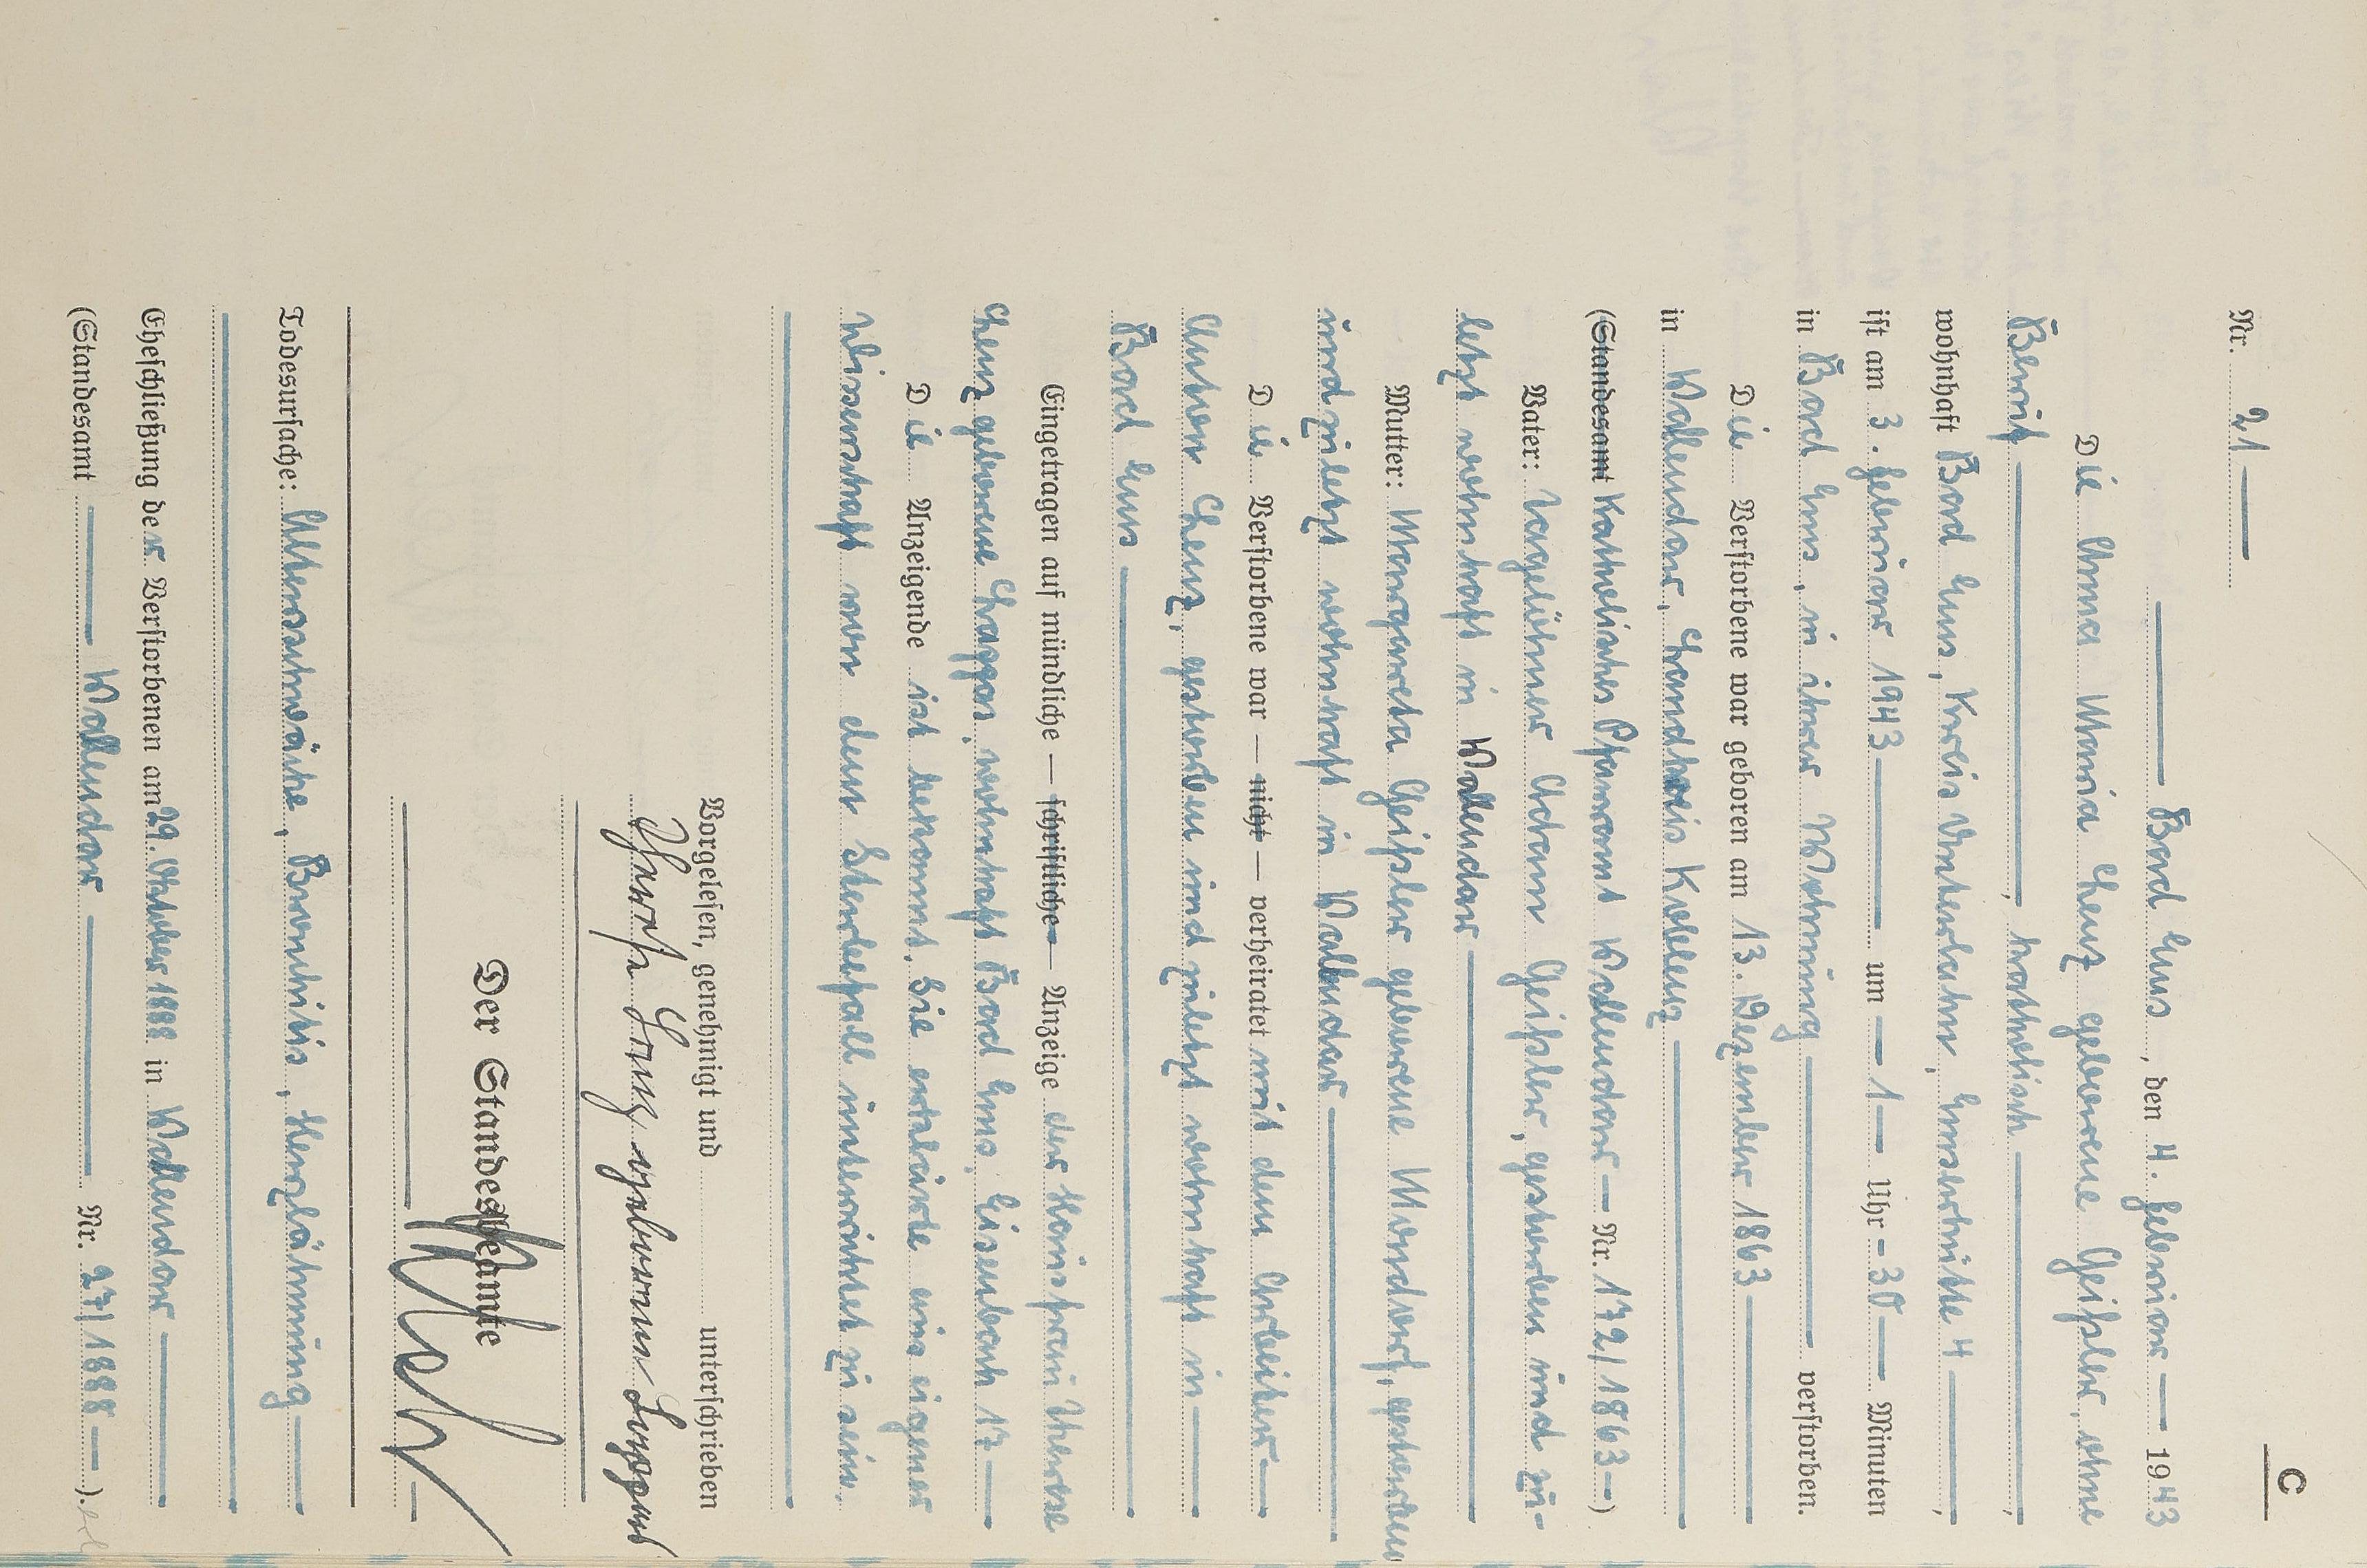 C
Nr. 21
Bad Ems, den 4. Februar 1943
Die Anna Maria Lenz geborene Geißler, ohne
Beruf, katholisch,
wohnhaft Bad Ems, Kreis Unterlahn, Emserhütte 4,
ist am 3. Februar 1943 um 1 Uhr 30 Minuten
in Bad Ems, in ihrer Wohnung verstorben.
Die Verstorbene war geboren am 13. Dezember 1863
in Vallendar, Landkreis Koblenz
(Standesamt Katholisches Pfarramt Vallendar Nr. 132/1863)
Vater: Tagelöhner Adam Geißler, gestorben und zu-
letzt wohnhaft in Vallendar
Mutter: Margareta Geißler geborene Mondorf, gestorben
und zuletzt wohnhaft in Vallendar
Die Verstorbene war — nicht — verheiratet mit dem Arbeiter
Anton Lenz, gestorben und zuletzt wohnhaft in
Bad Ems
Eingetragen auf mündliche — schriftliche — Anzeige der Hausfrau Therese
Lenz geborene, wohnhaft Bad Ems, Eisenbach 17
Die Anzeigende ist bekannt. Sie erklärte aus eigener
Wissenschaft von dem Sterbefall unterrichtet zu sein.
Vorgelesen, genehmigt und unterschrieben
Lenz geborene
Der Standesbeamte
Todesursache: Altersschwäche, Bronchitis, Herzlähmung
Eheschließung der Verstorbenen am 29. Oktober 1888 in Vallendar
(Standesamt Vallendar Nr. 27/1888).